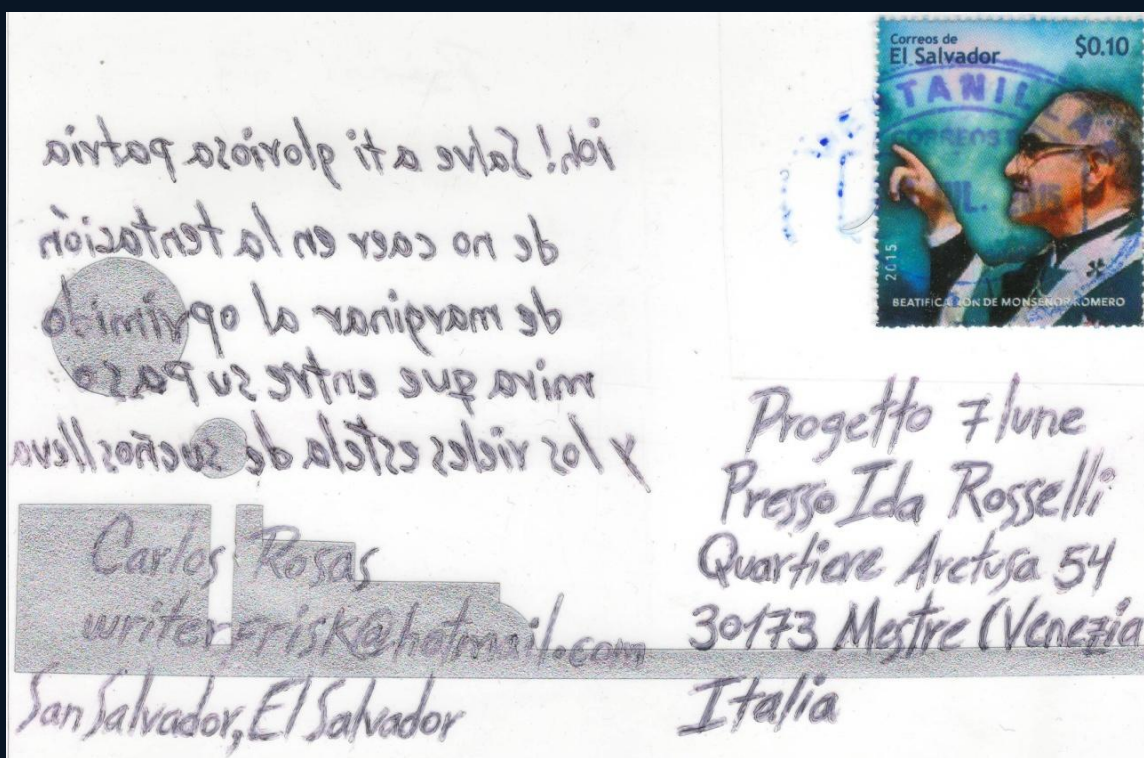 Correos de
El Salvador
$0.10
2015
BEATIFICACIÓN DE MONSEÑOR ROMERO
¡oh! Salve a ti gloriosa patria
de no caer en la tentación
de marginar al oprimido
mira que entre su paso
y los rieles estela de sueños lleva
Carlos Rosas
writerfrisk@hotmail.com
San Salvador, El Salvador
Progetto 7 lune
Presso Ida Rosselli
Quartiere Aretusa 54
30173 Mestre (Venezia
Italia